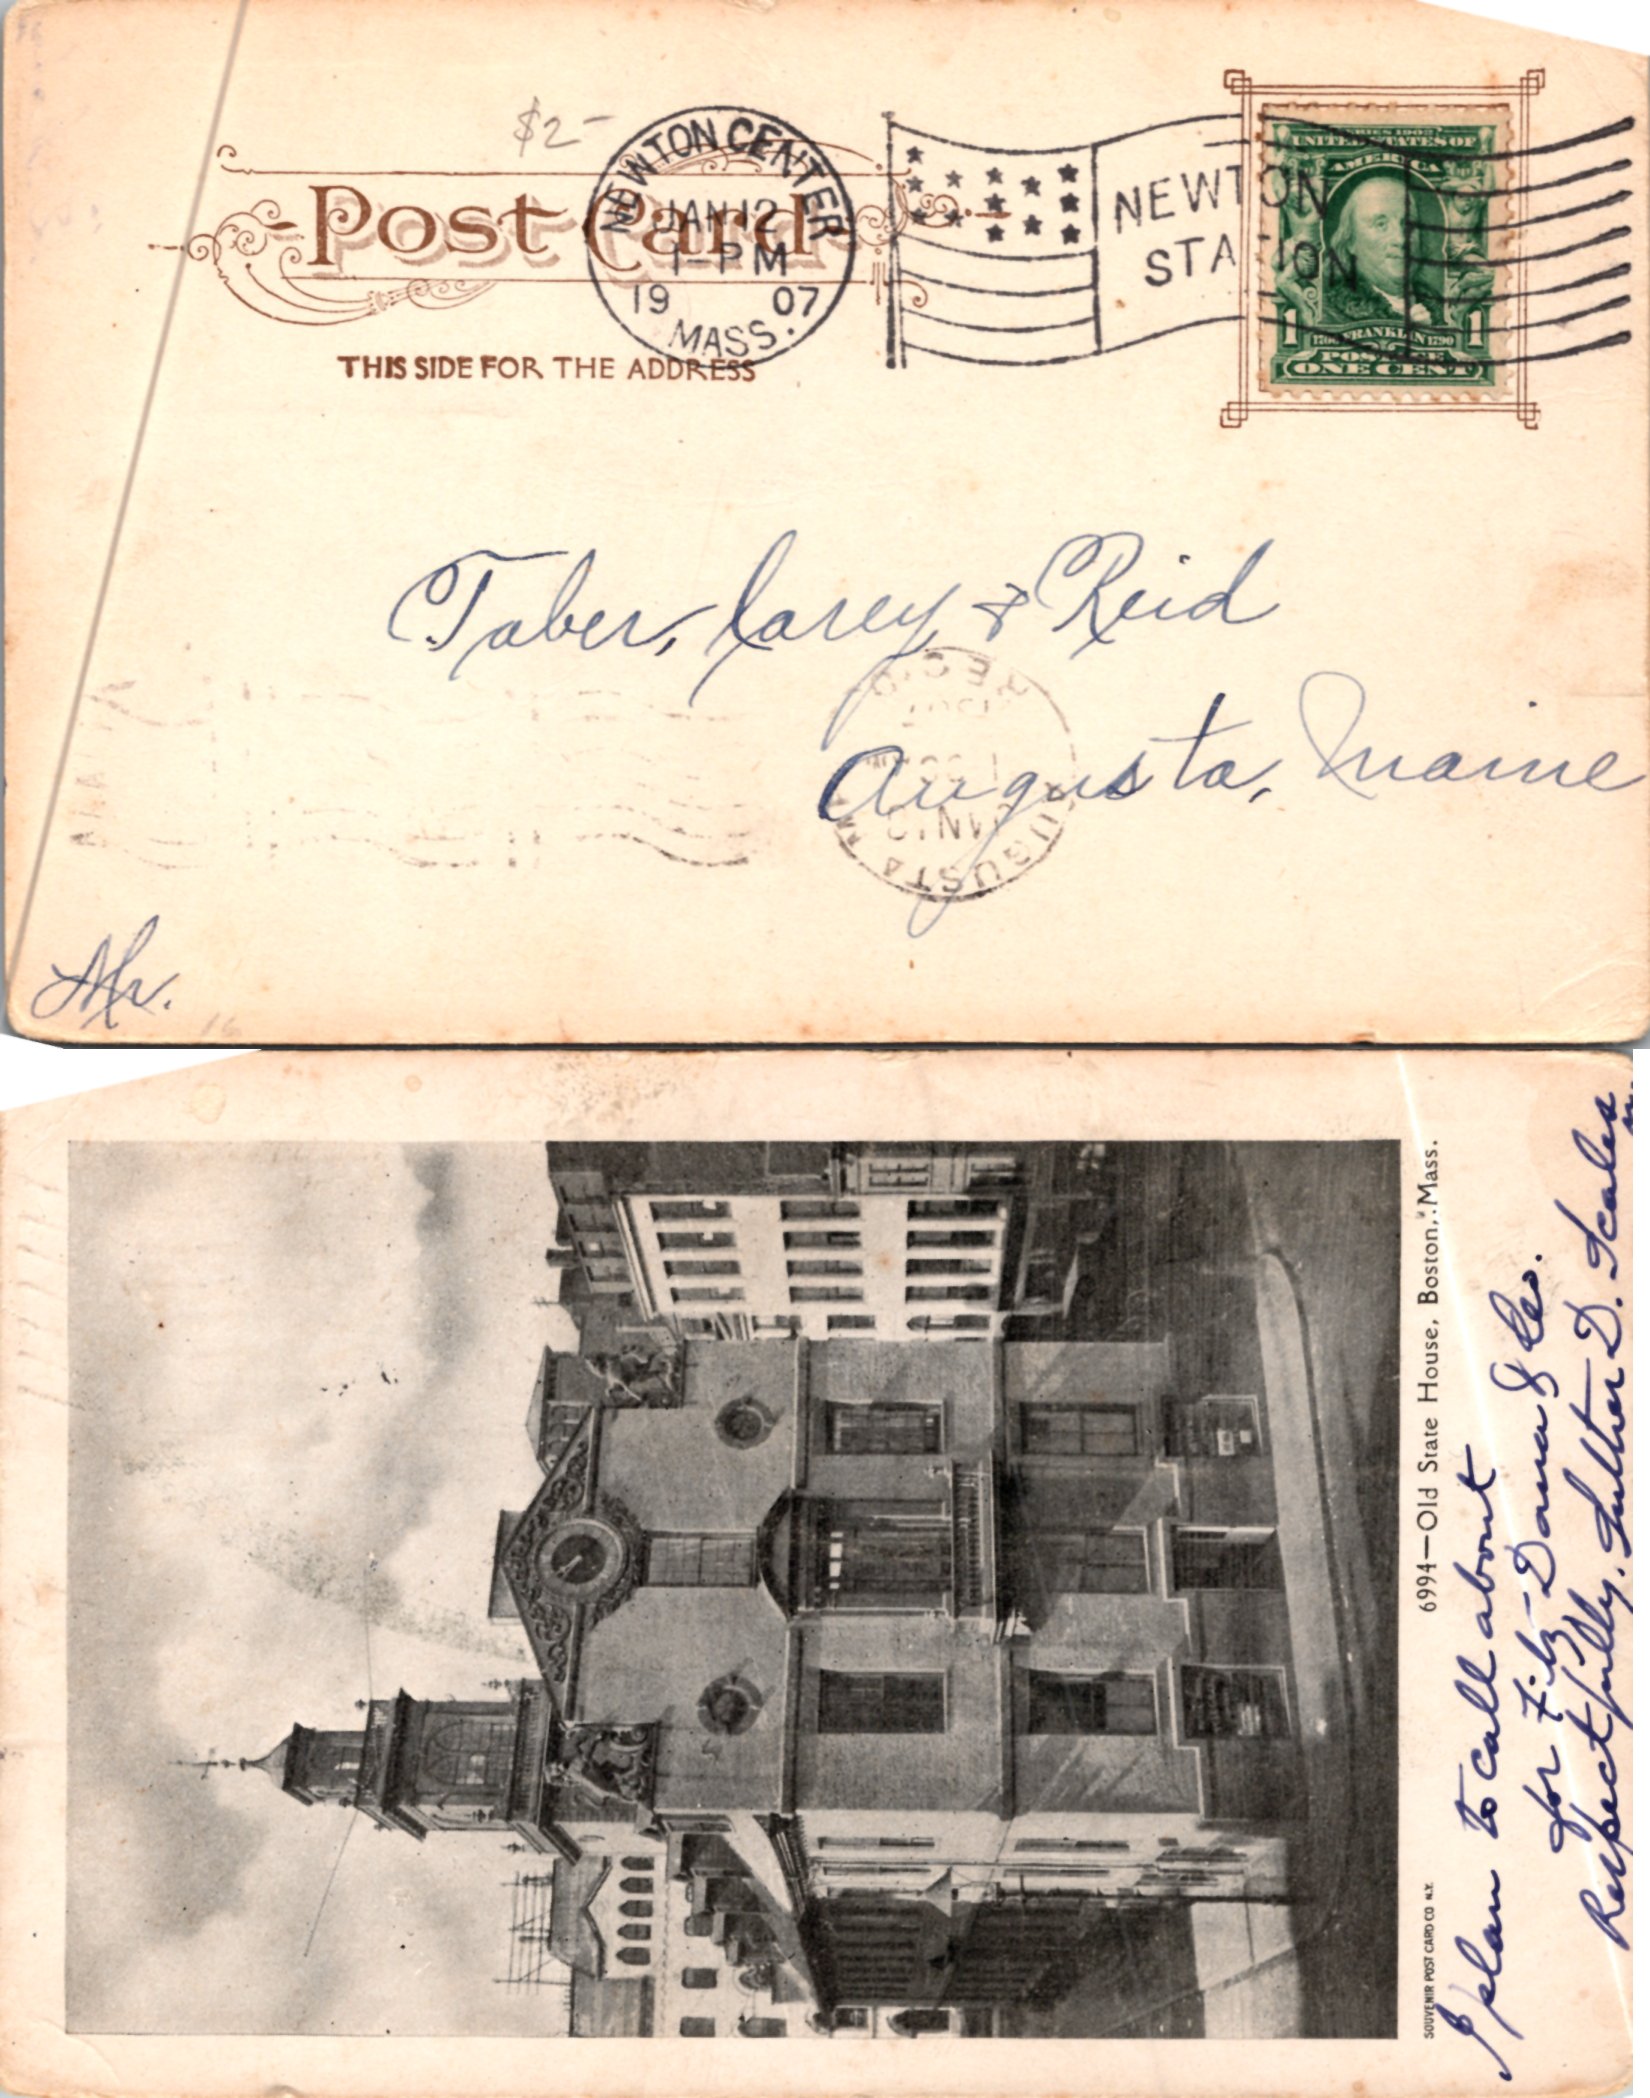 $2-
Post Card
THIS SIDE FOR THE ADDRESS
NEWTON CENTER
JAN 12
1-PM
19 07
MASS.
NEWTON
STATION
SERIES 1902
UNITED STATES OF
AMERICA
1706 FRANKLIN 1790
1 1
POSTAGE
ONE CENT
Taber, Carey & Reid
Augusta, Maine
REC'D
1907
AUGUSTA
Mr.
6994—Old State House, Boston, Mass.
SOUVENIR POST CARD CO N.Y.
I plan to call about
for Fitz-Dana & Co.
Respectfully, Luther D. Scales